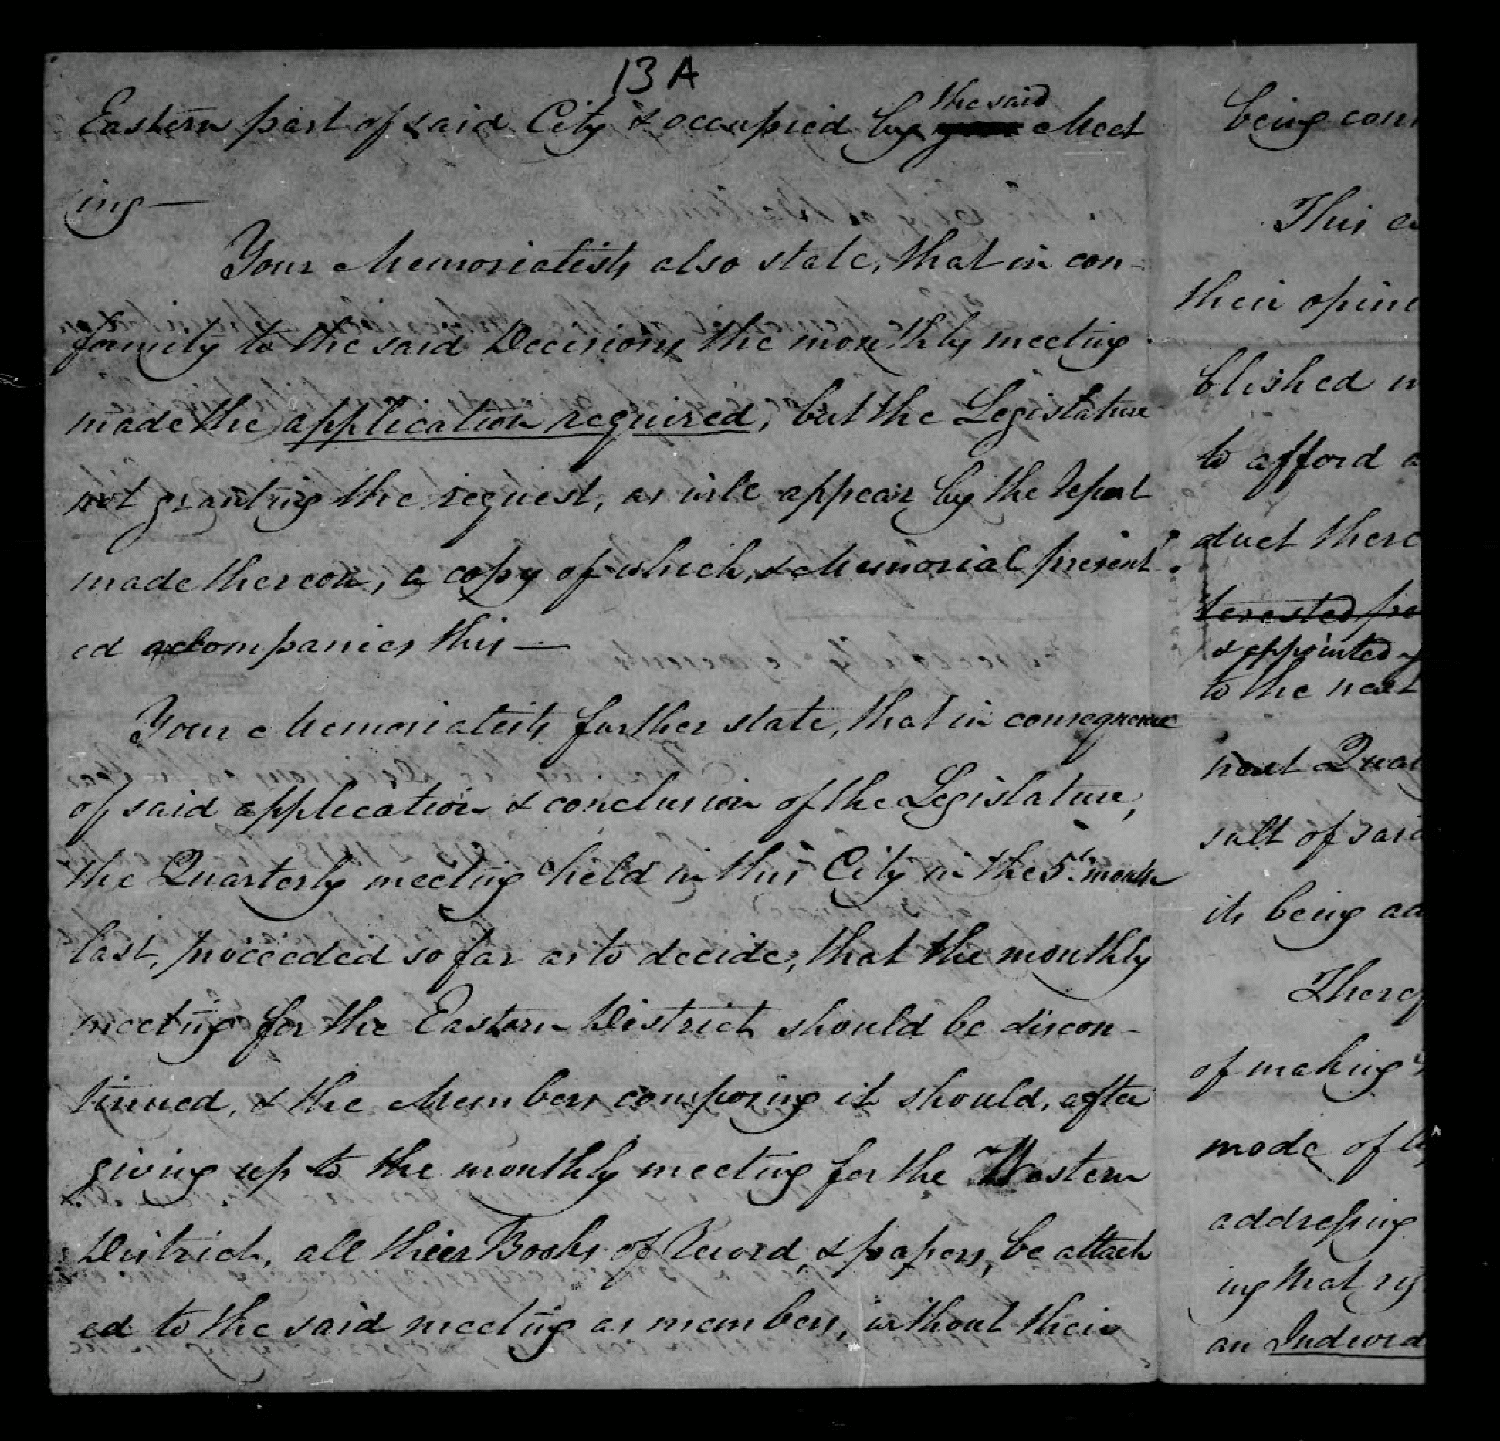 13 A
the said
Eastern part of said City & occupied by Meet
ing —
Your Memorialists also state, that in con-
formity to the said Decision, the monthly meeting
made the application required, but the Legislature
not granting the request, as will appear by the report
made thereon, a copy of which, & Memorial present
ed accompanies this —
Your Memorialists further state, that in consequence
of said application & conclusion of the Legislature,
the Quarterly meeting held in this City in the 5th month
last, proceeded so far as to decide, that the monthly
meeting for the Eastern District should be discon-
tinued, & the Members composing it should, after
giving up to the monthly meeting for the Western
District, all their Books of Record, & papers, be attach
ed to the said meeting as members, without their
being con
This
their opini
blished
to afford a
duct there
terested
& appointed
to the next
next Quar
sult of said
its being ad
There
of making
mode of
addressing
ing that
an Individ